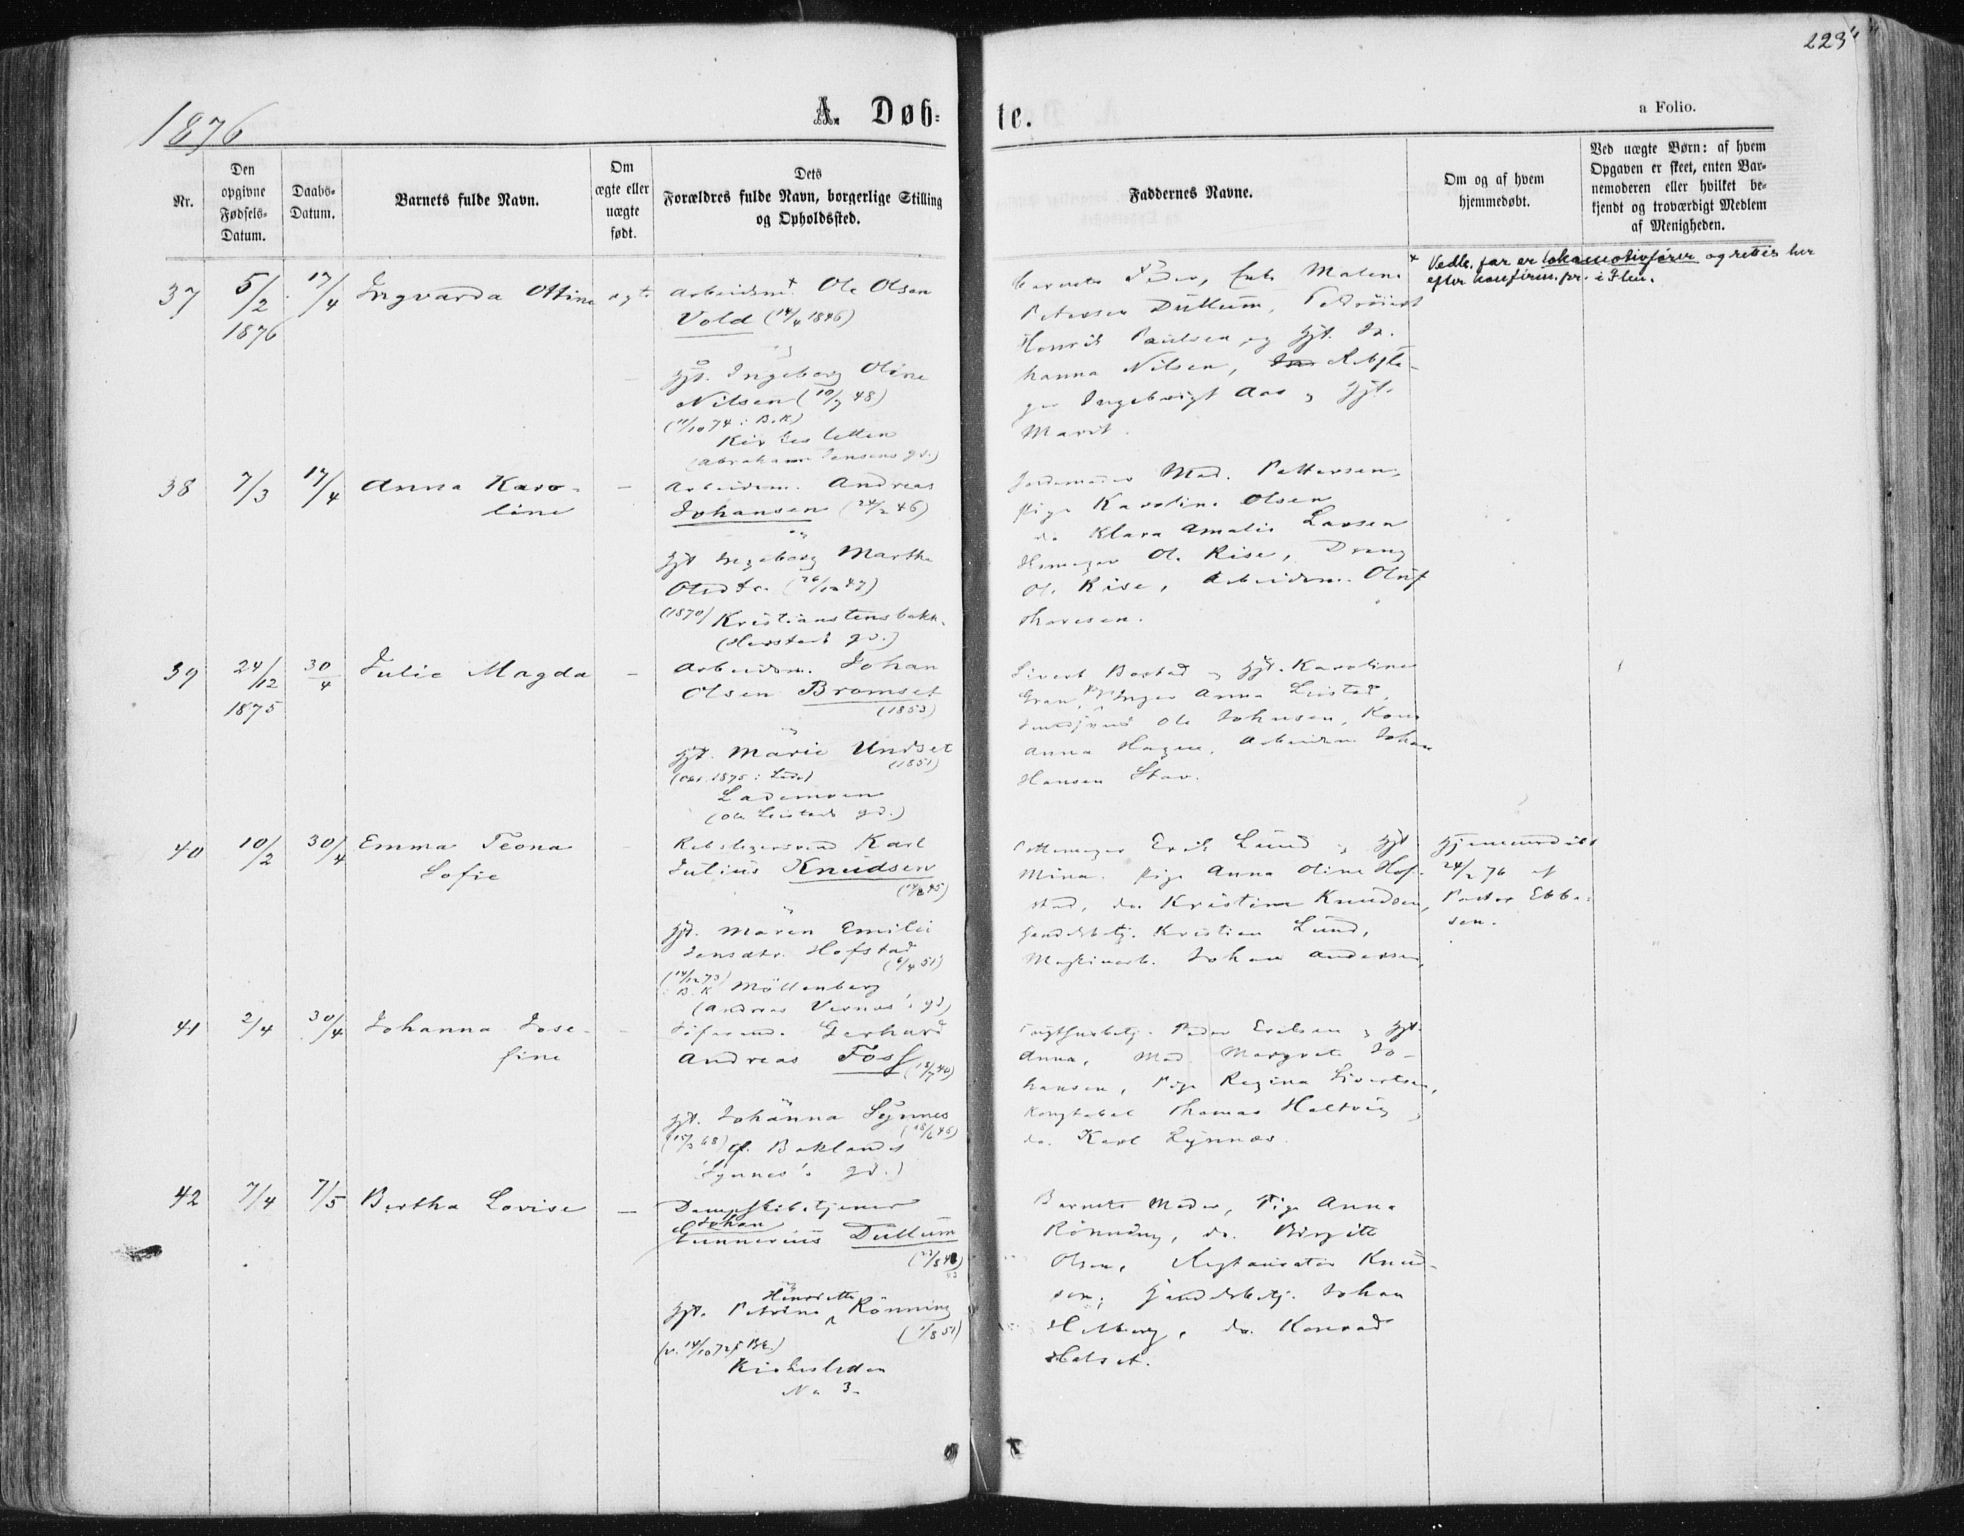 223
1876
A. Døb=
te.
a Folio.
Nr.
Den opgivne Fødsels-Datum.
Daabs-Datum.
Barnets fulde Navn.
Om ægte eller uægte født.
Dets Forældres fulde Navn, borgerlige Stilling og Opholdssted.
Faddernes Navne.
Om og af hvem hjemmedøbt.
Ved uægte Børn: af hvem Opgaven er skeet, enten Barnemoderen eller hvilket bekjendt og troværdigt Medlem af Menigheden.
37 5/2 1876 17/4 Ingvarda Ottine ægte
Arbeidsm. Ole Olsen
Vold (14/4 1846)
og
Hst. Ingeborg Oline
Nilsen (10/7 48)
(11/10 74: B.K)
(Abraham Jensens gd.)
Barnets Fader, Enke Malene
Petersen Dullum,
Henrik Paulsen og Hst. Jo-
hanna Nilsen,
Ingebrigt Aas og Hst.
Marit.
Vedk. far er lokomotivfører og rettes her
efter konfirm.pr. i Ilen.
38 7/3 17/4 Anna Karo-
line
Arbeidsm. Andreas
Johansen (24/2 46)
og
Hst Ingeborg Martha
Olsdtr. (26/12 47)
(1870) Kristianstensbakk.
gd.)
Jordemoder Mad. Pettersen,
Pige Karoline Olsen
do Klara Amalie Larsen
Ole Rise, Dreng
Ole Rise, Arbeidsm. Oluf
Thoresen.
39 24/12 1875 30/4 Julie Magda
Arbeidsm. Johan
Olsen Bromset
(1853)
og
Hst. Marie Undset
(1851)
(1875: Lade)
Lademoen
(Ole Leistads gd.)
Sivert Bostad og Hst. Karoline
Gran, Pige Inger Anna Leistad,
Ole Johnsen, Kone
Anna Hagen, Arbeidsm. Johan
Hansen Stav.
40 10/2 30/4 Emma Teona
Sofie
Rebslagersvend Karl
Julius Knudsen
og
Hst. Maren Emilie
Jensdtr. Hofstad
(6/4 51)
(14/12 73) B.K Möllenberg
(Andreas Vernes's gd)
Pottemager Erik Lund og Hst
Mina. Pige Anna Oline Hof-
stad, do. Kristine Knudsen,
Handelsbetj. Kristian Lund,
Maskinarb. Johan Andersen,
Hjemmedöbt
24/2 76 af
Pastor Ebbe-
sen.
41 2/4 30/4 Johanna Jose-
fine
Söfarend. Gerhard
Andreas Foss
og
Hst. Johanna Lynnes
(15/6 45)
(15/3 68) Ö. Baklandet
(Lynnes's gd.)
Peder Erelsen og Hst
Anna, Mad Margrete Jo-
hansen, Pige Regina Sivertsen,
Konstabel Thomas Holtvig,
do. Karl Lynnes.
42 7/4 7/5 Bertha Lovise
Dampskibstjener
Johan
Gunnerius Dullum
og
Henriette
Hst. Petrine Rönning
(1/8 51)
(v. 14/10 72 i Bk.)
Kirkesleden
No 3.
Barnets Moder, Pige Anna
Rönning, do. Birgitte
Olsen, Restauratör Knud-
sen, Handelsbetj. Johan
Hetberg, do. Konrad
Halset.